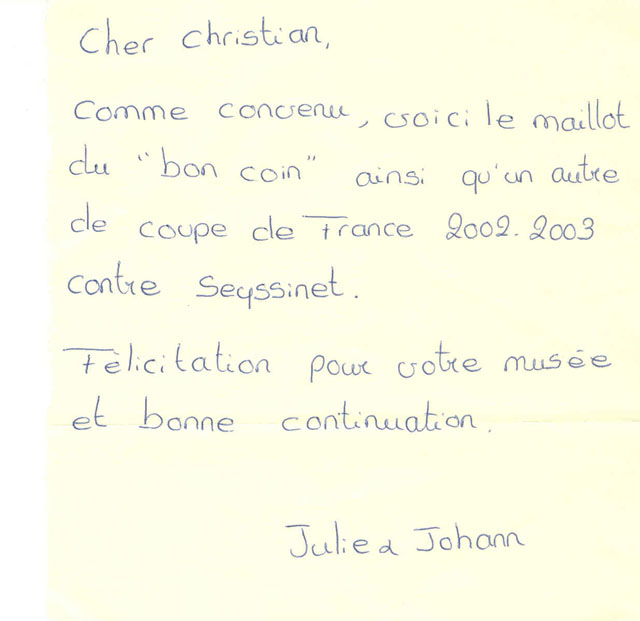 Cher Christian,
Comme convenu, voici le maillot
du "bon coin" ainsi qu'un autre
de coupe de France 2002.2003
contre Seyssinet.
Félicitation pour votre musée
et bonne continuation.
Julie & Johann